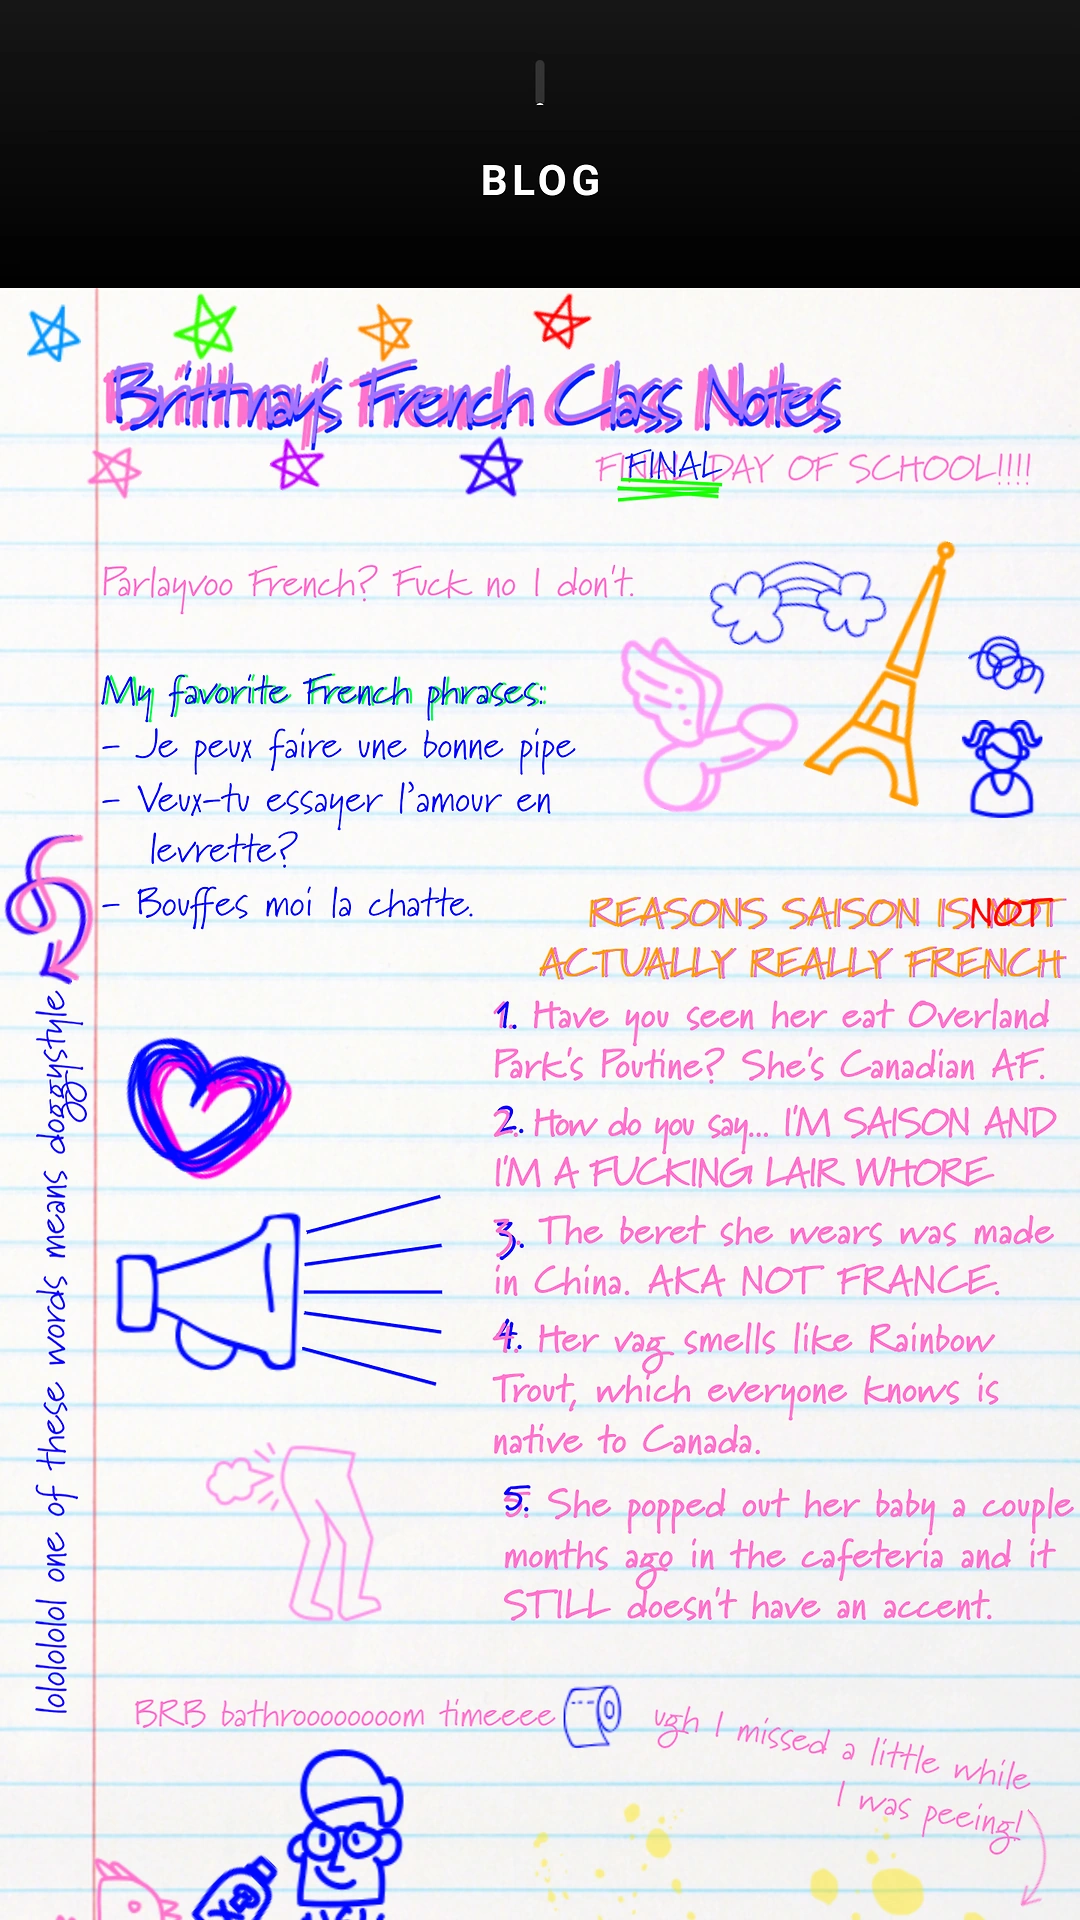 BLOG
Brittnay's French Class Notes
FINAL DAY OF SCHOOL!!!!
Parlayvoo French? Fuck no I don't.
My favorite French phrases:
- Je peux faire une bonne pipe
- Veux-tu essayer l'amour en
levrette?
- Bouffes moi la chatte.
lolololol one of these words means doggystyle
REASONS SAISON IS NOT
ACTUALLY REALLY FRENCH
1. Have you seen her eat Overland
Park's Poutine? She's Canadian AF.
2. How do you say... I'M SAISON AND
I'M A FUCKING LAIR WHORE
3. The beret she wears was made
in China. AKA NOT FRANCE.
4. Her vag smells like Rainbow
Trout, which everyone knows is
native to Canada.
5. She popped out her baby a couple
months ago in the cafeteria and it
STILL doesn't have an accent.
BRB bathroooooooom timeeee
ugh I missed a little while
I was peeing!